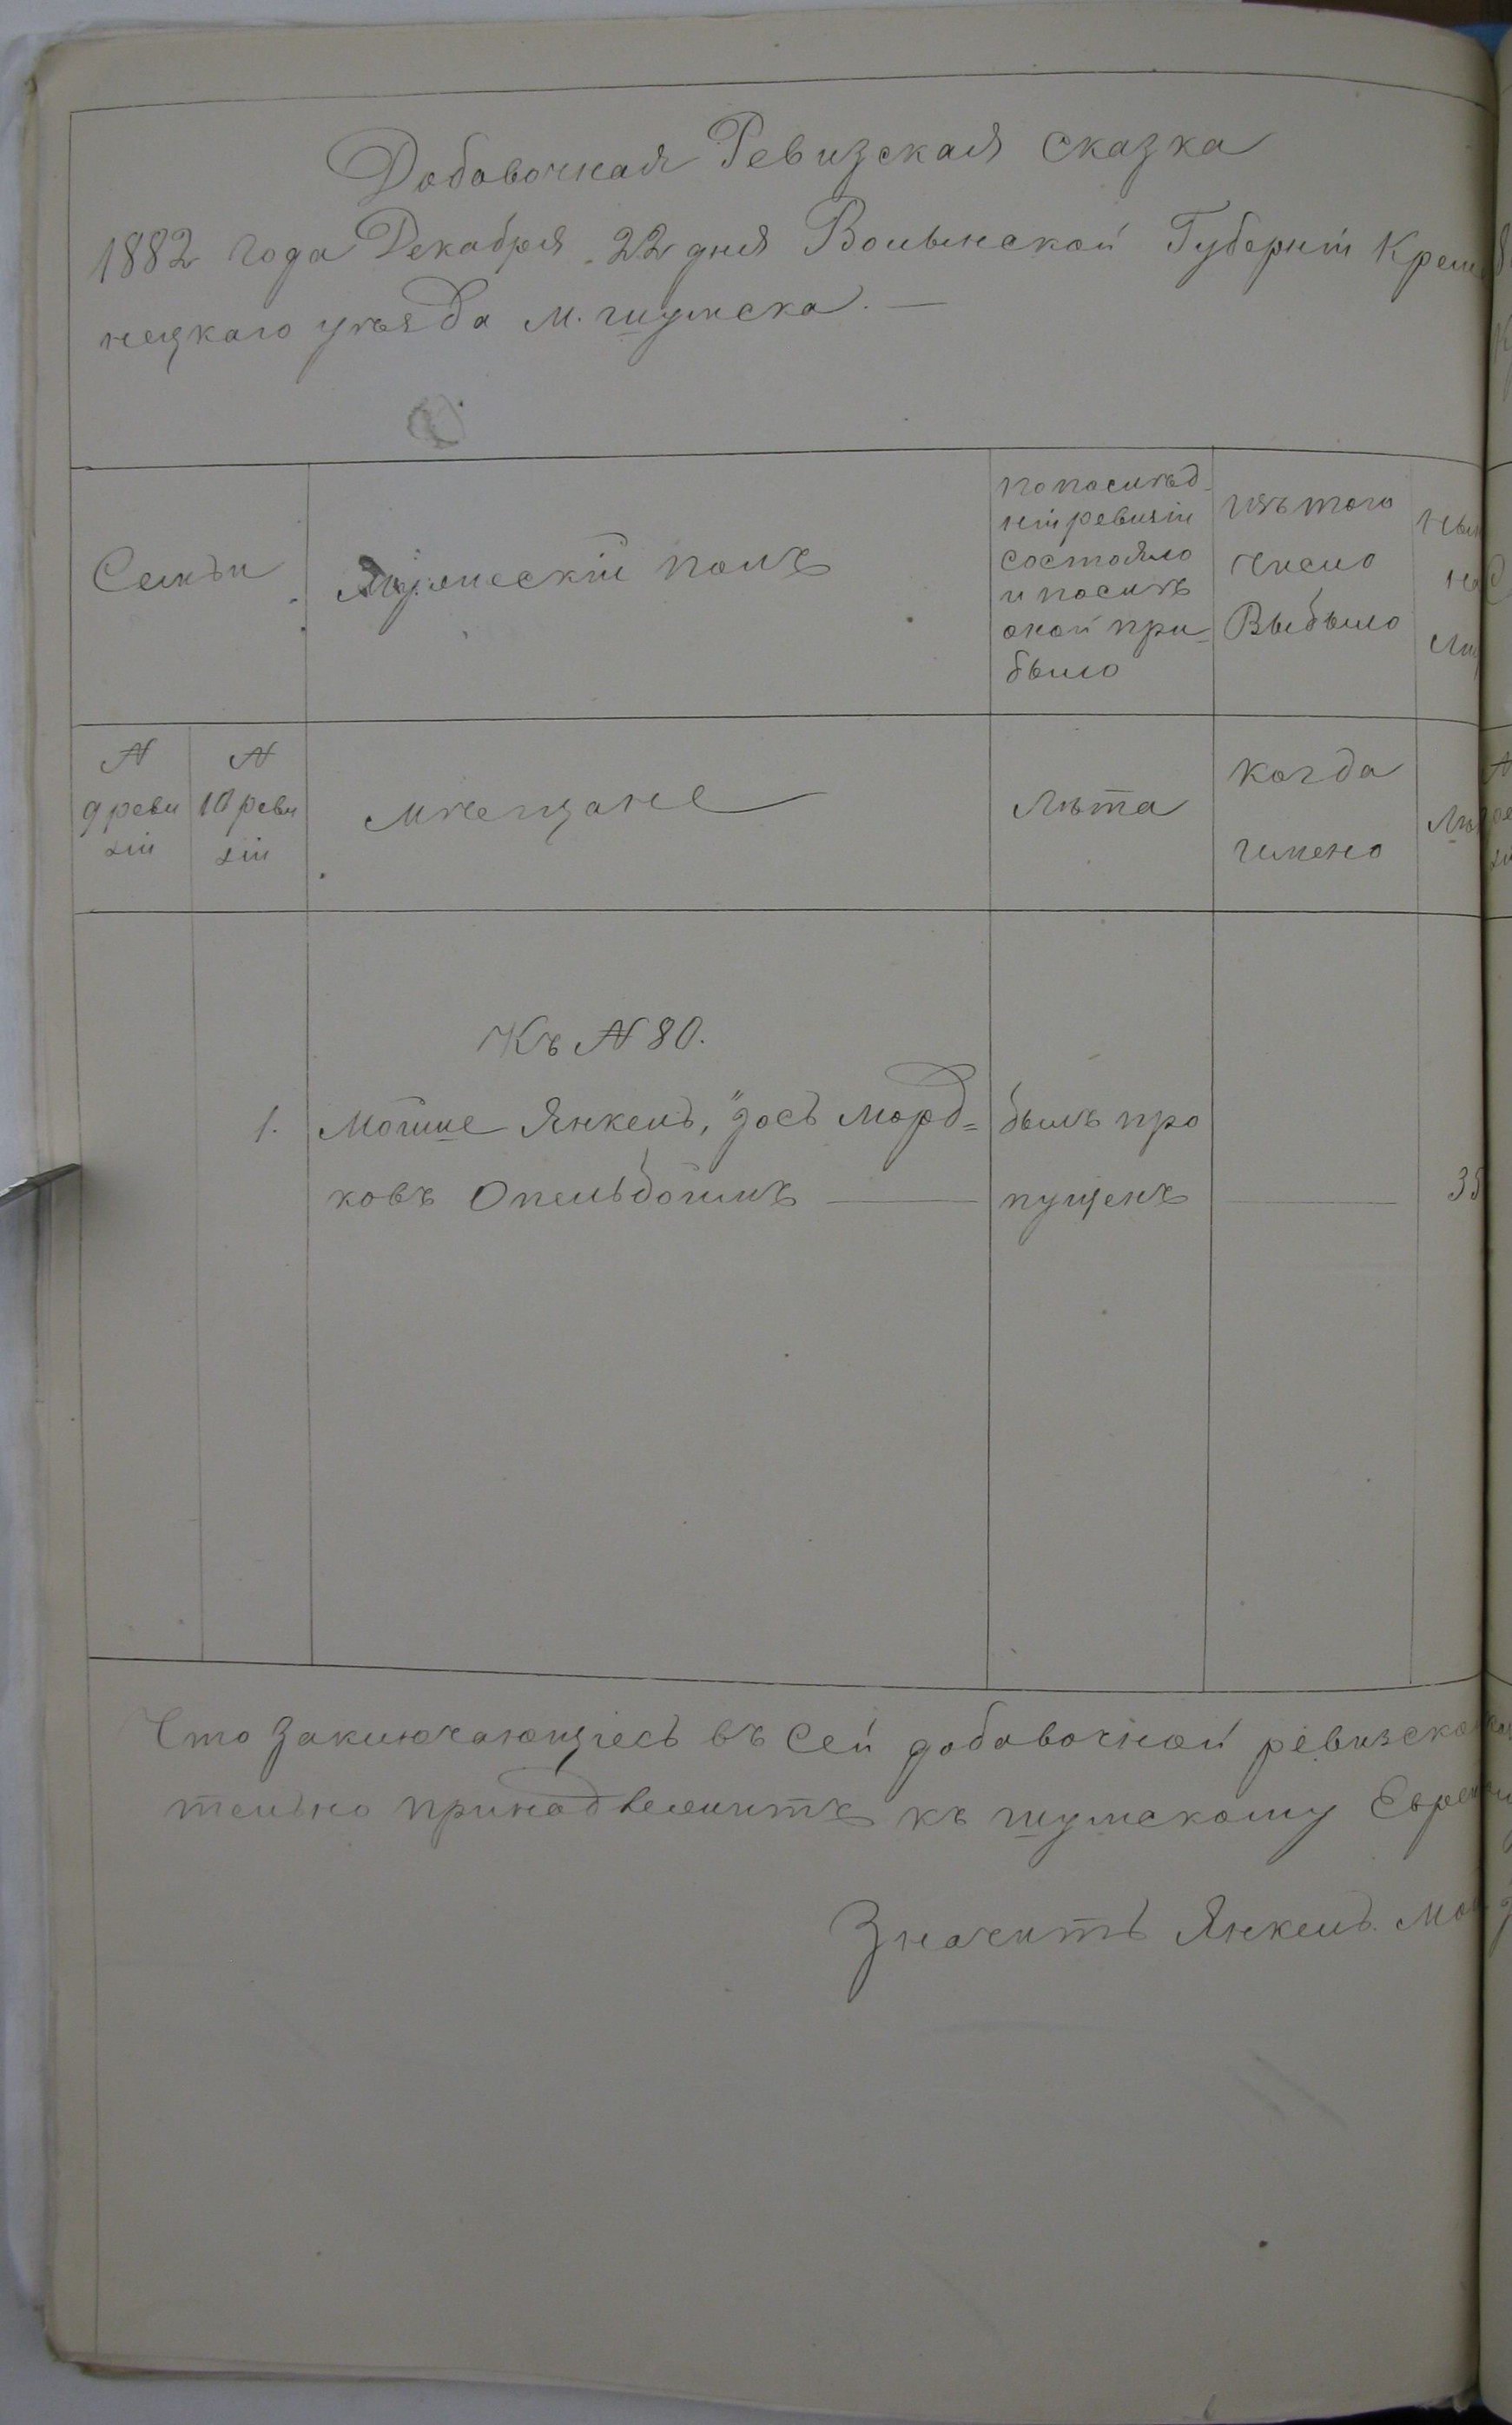 Добавочная Ревизская сказка
1882 года Декабря 22 дня Волынской Губерніи Креме
нецкаго уѣзда м. Шумска. —
Семьи
Мужескій полъ
По послѣд-
ней ревизіи
состояло
и послѣ
оной при-
было
Изъ того
число
Выбыло
Нын
на
ли
№
9 реви
зіи
№
10 реви
зіи
Мѣщане
Лѣта
Когда
имено
Лѣ
Къ № 80.
1. Мошше Янкель, Морд= былъ про
ковъ Опельбоимъ — пущенъ — 35
Что заключающіесь въ сей добавочной ревизско
тельно принадвлежитъ къ Шумскому Евре
Значитъ Янкель Мо